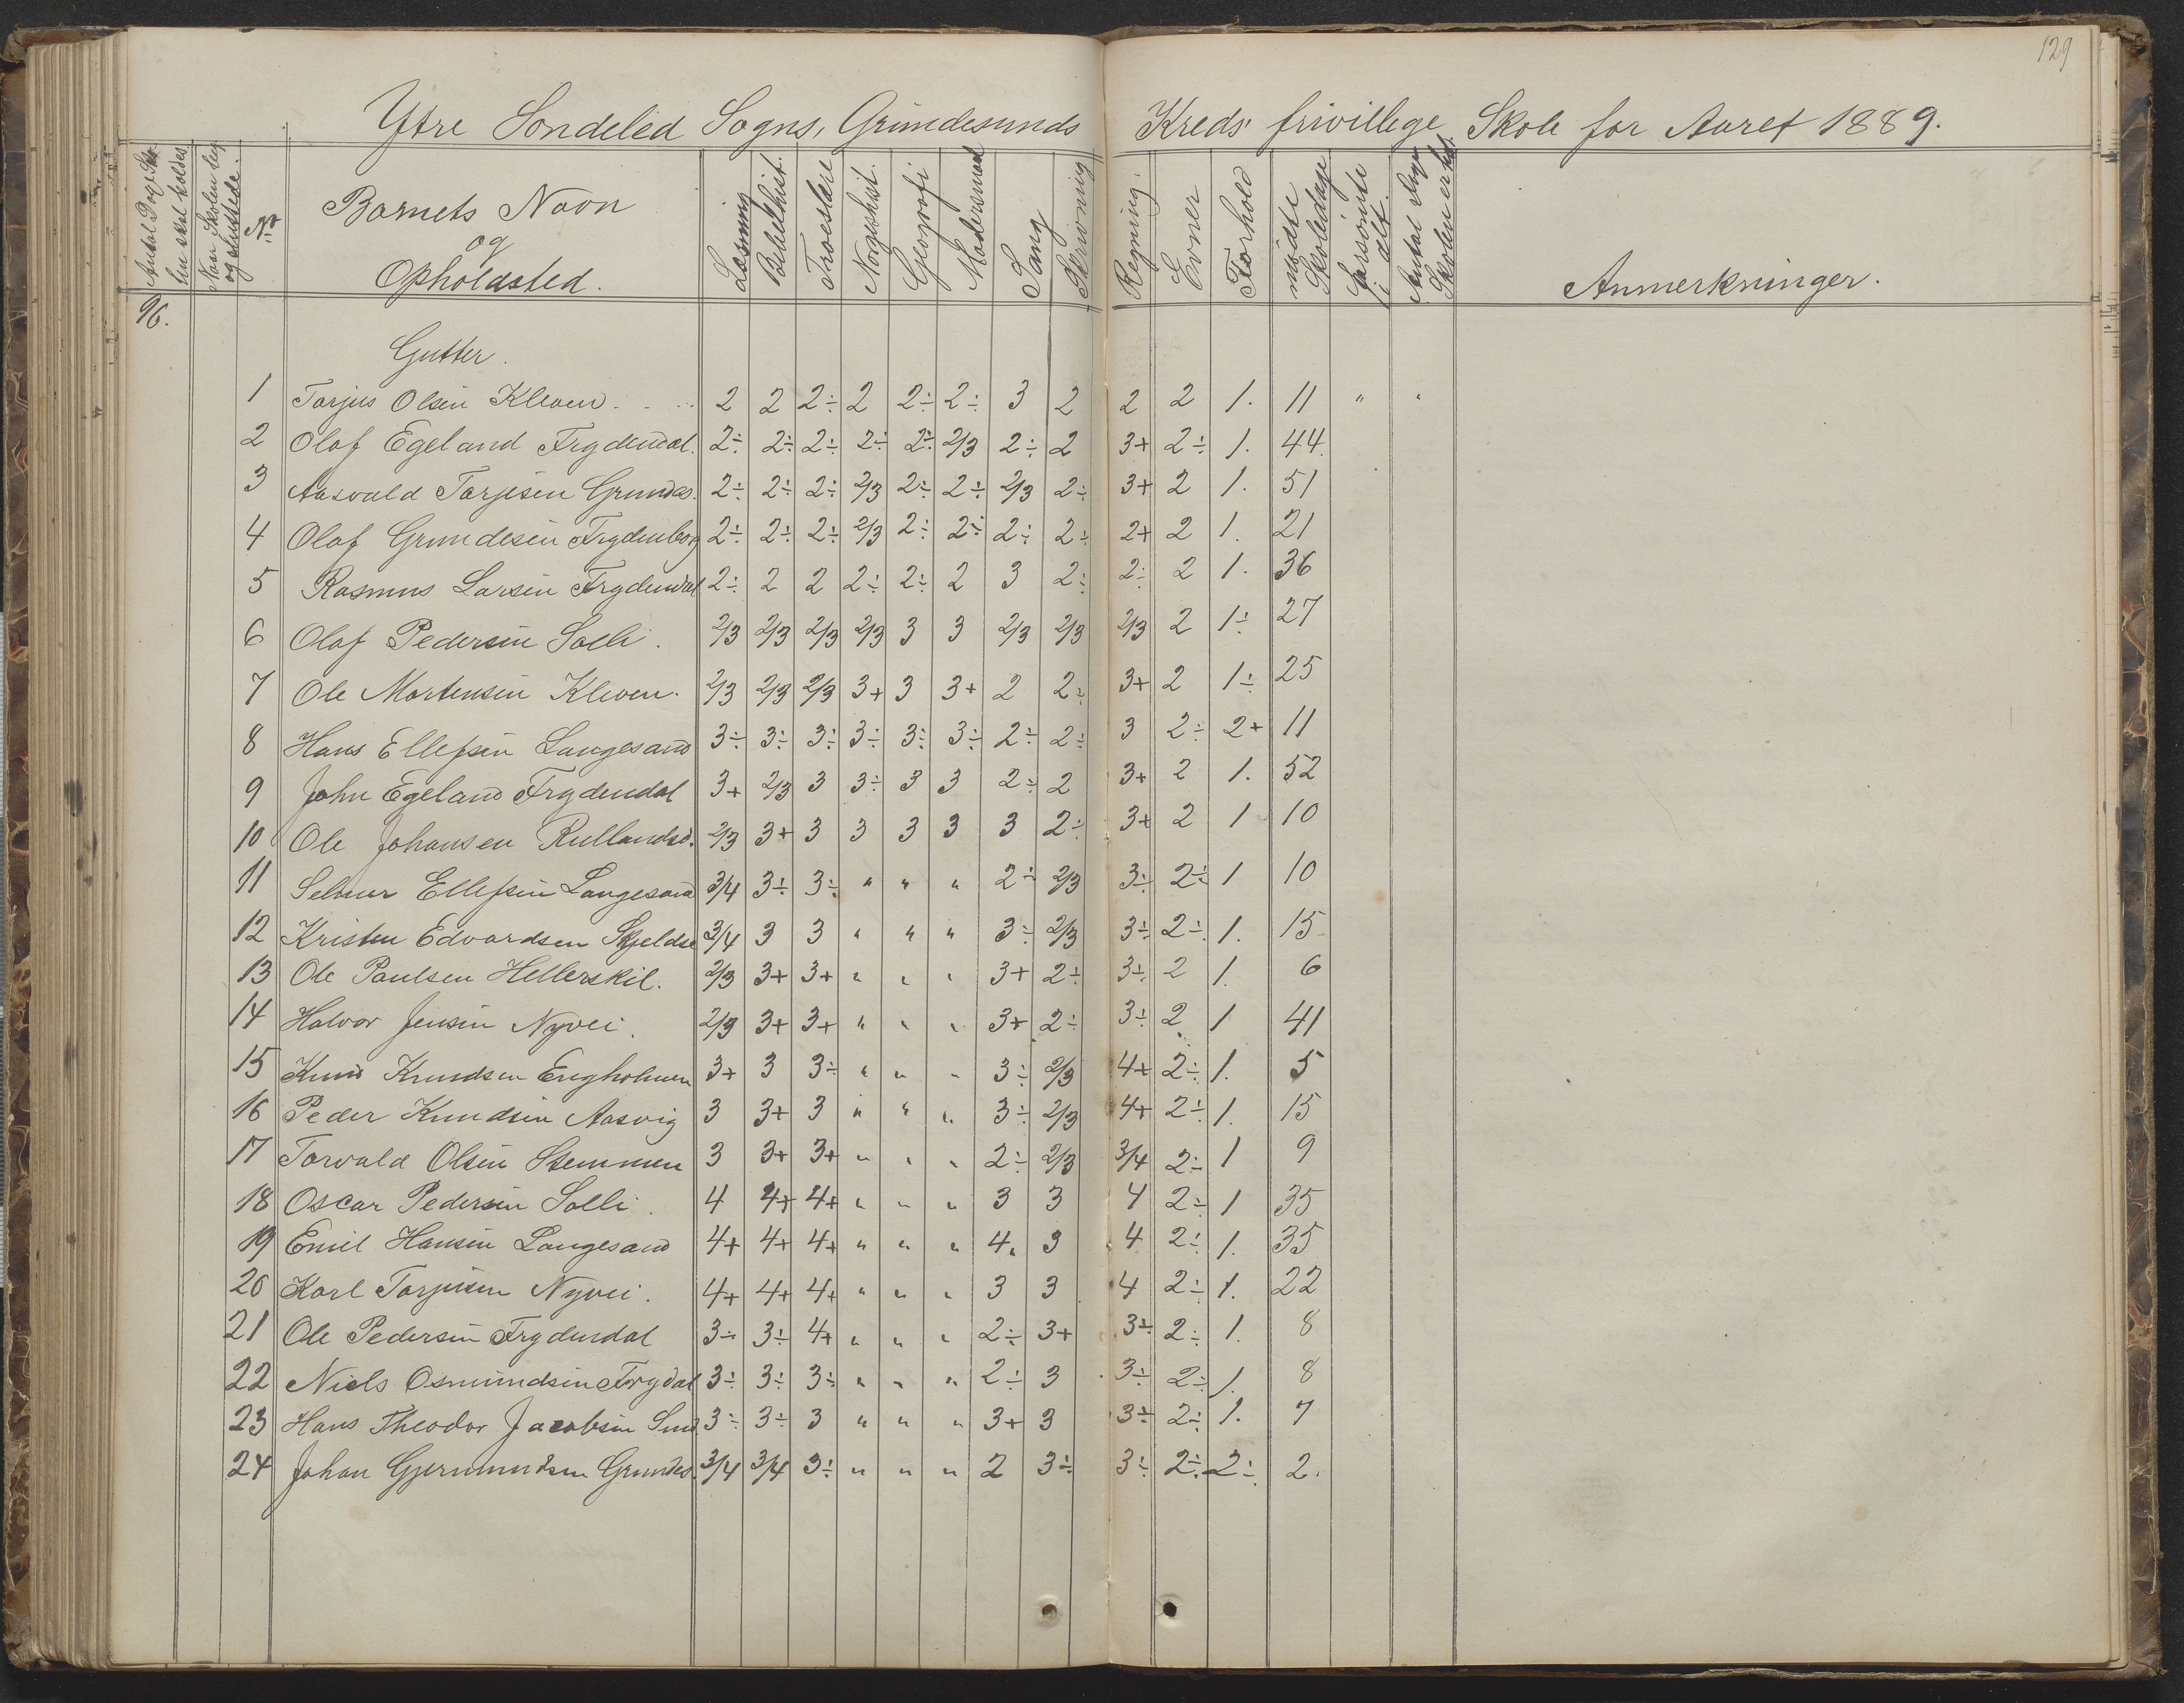 129
Ytre Søndeled Sogns, Grundesunds Kreds' frivillege Skole for Aaret 1889.
Antal Dage Skolen skal holdes
Naar Skolen beg. og sluttede.
No
Barnets Navn og Opholdsted.
Læsning
Bibelhist.
Troeslære
Norgeshist.
Geografi
Modersmaal
Sang
Skrivning
Regning.
Evner
Forhold
mødte Skoledage
forsömte i alt.
Antal Dage Skolen er hol.
Anmerkninger.
96.
Gutter.
1 Torjus Olsen Kleven. 2 2 2÷ 2 2÷ 2÷ 3 2 2 2 1. 11 " "
2 Olaf Egeland Frydendal. 2÷ 2÷ 2÷ 2÷ 2÷ 2/3 2÷ 2 3+ 2÷ 1. 44.
3 Aasvald Torjesen Grundes. 2÷ 2÷ 2÷ 2/3 2÷ 2÷ 2/3 2÷ 3+ 2 1. 51
4 Olaf Grundesen Frydenborg 2÷ 2÷ 2÷ 2/3 2÷ 2÷ 2÷ 2÷ 2+ 2 1. 21
5 Rasmus Larsen Frydendal 2÷ 2 2 2÷ 2÷ 2 3 2÷ 2÷ 2 1. 36
6 Olaf Pedersen Solli. 2/3 2/3 2/3 2/3 3 3 2/3 2/3 2/3 2 1÷ 27
7 Ole Mortensen Kleven. 2/3 2/3 2/3 3+ 3 3+ 2 2÷ 3+ 2 1÷ 25
8 Hans Ellefsen Langesand 3÷ 3÷ 3÷ 3÷ 3÷ 3÷ 2÷ 2÷ 3 2÷ 2+ 11
9 John Egeland Frydendal 3+ 2/3 3 3÷ 3 3 2÷ 2 3+ 2 1. 52
10 Ole Johansen Rullandsd. 2/3 3+ 3 3 3 3 3 2÷ 3+ 2 1 10
11 Selmer Ellefsen Langesand 3/4 3÷ 3÷ " " " 2÷ 2/3 3÷ 2÷ 1 10
12 Kristen Edvardsen Skjeldsø 3/4 3 3 " " " 3÷ 2/3 3÷ 2÷ 1. 15
13 Ole Paulsen Hellerskil. 2/3 3+ 3+ " " " 3+ 2÷ 3÷ 2 1. 6
14 Halvor Jensen Nyvei. 2/3 3+ 3+ " " " 3+ 2÷ 3÷ 2 1 41
15 Knud Knudsen Engholmen 3+ 3 3÷ " " " 3÷ 2/3 4+ 2÷ 1. 5
16 Peder Knudsen Aasvig 3 3+ 3 " " " 3÷ 2/3 4+ 2÷ 1. 15
17 Torvald Olsen Stemmen 3 3+ 3+ " " " 2÷ 2/3 3/4 2÷ 1 9
18 Oscar Pedersen Solli. 4 4+ 4+ " " " 3 3 4 2÷ 1 35
19 Emil Hansen Langesand 4+ 4+ 4+ " " " 4. 3 4 2÷ 1. 35
20 Karl Torjusen Nyvei. 4+ 4+ 4+ " " " 3 3 4 2÷ 1. 22
21 Ole Pedersen Frydendal 3÷ 3÷ 4+ " " " 2÷ 3+ 3÷ 2÷ 1. 8
22 Niels Osmundsen Frydal 3÷ 3÷ 3÷ " " " 2÷ 3 3÷ 2÷ 1. 8
23 Hans Theodor Jacobsen Sund 3÷ 3÷ 3 " " " 3+ 3 3÷ 2÷ 1. 7
24 Johan Gjermundsen Grundes. 3/4 3/4 3÷ " " " 2 3÷ 3÷ 2÷ 2÷ 2.